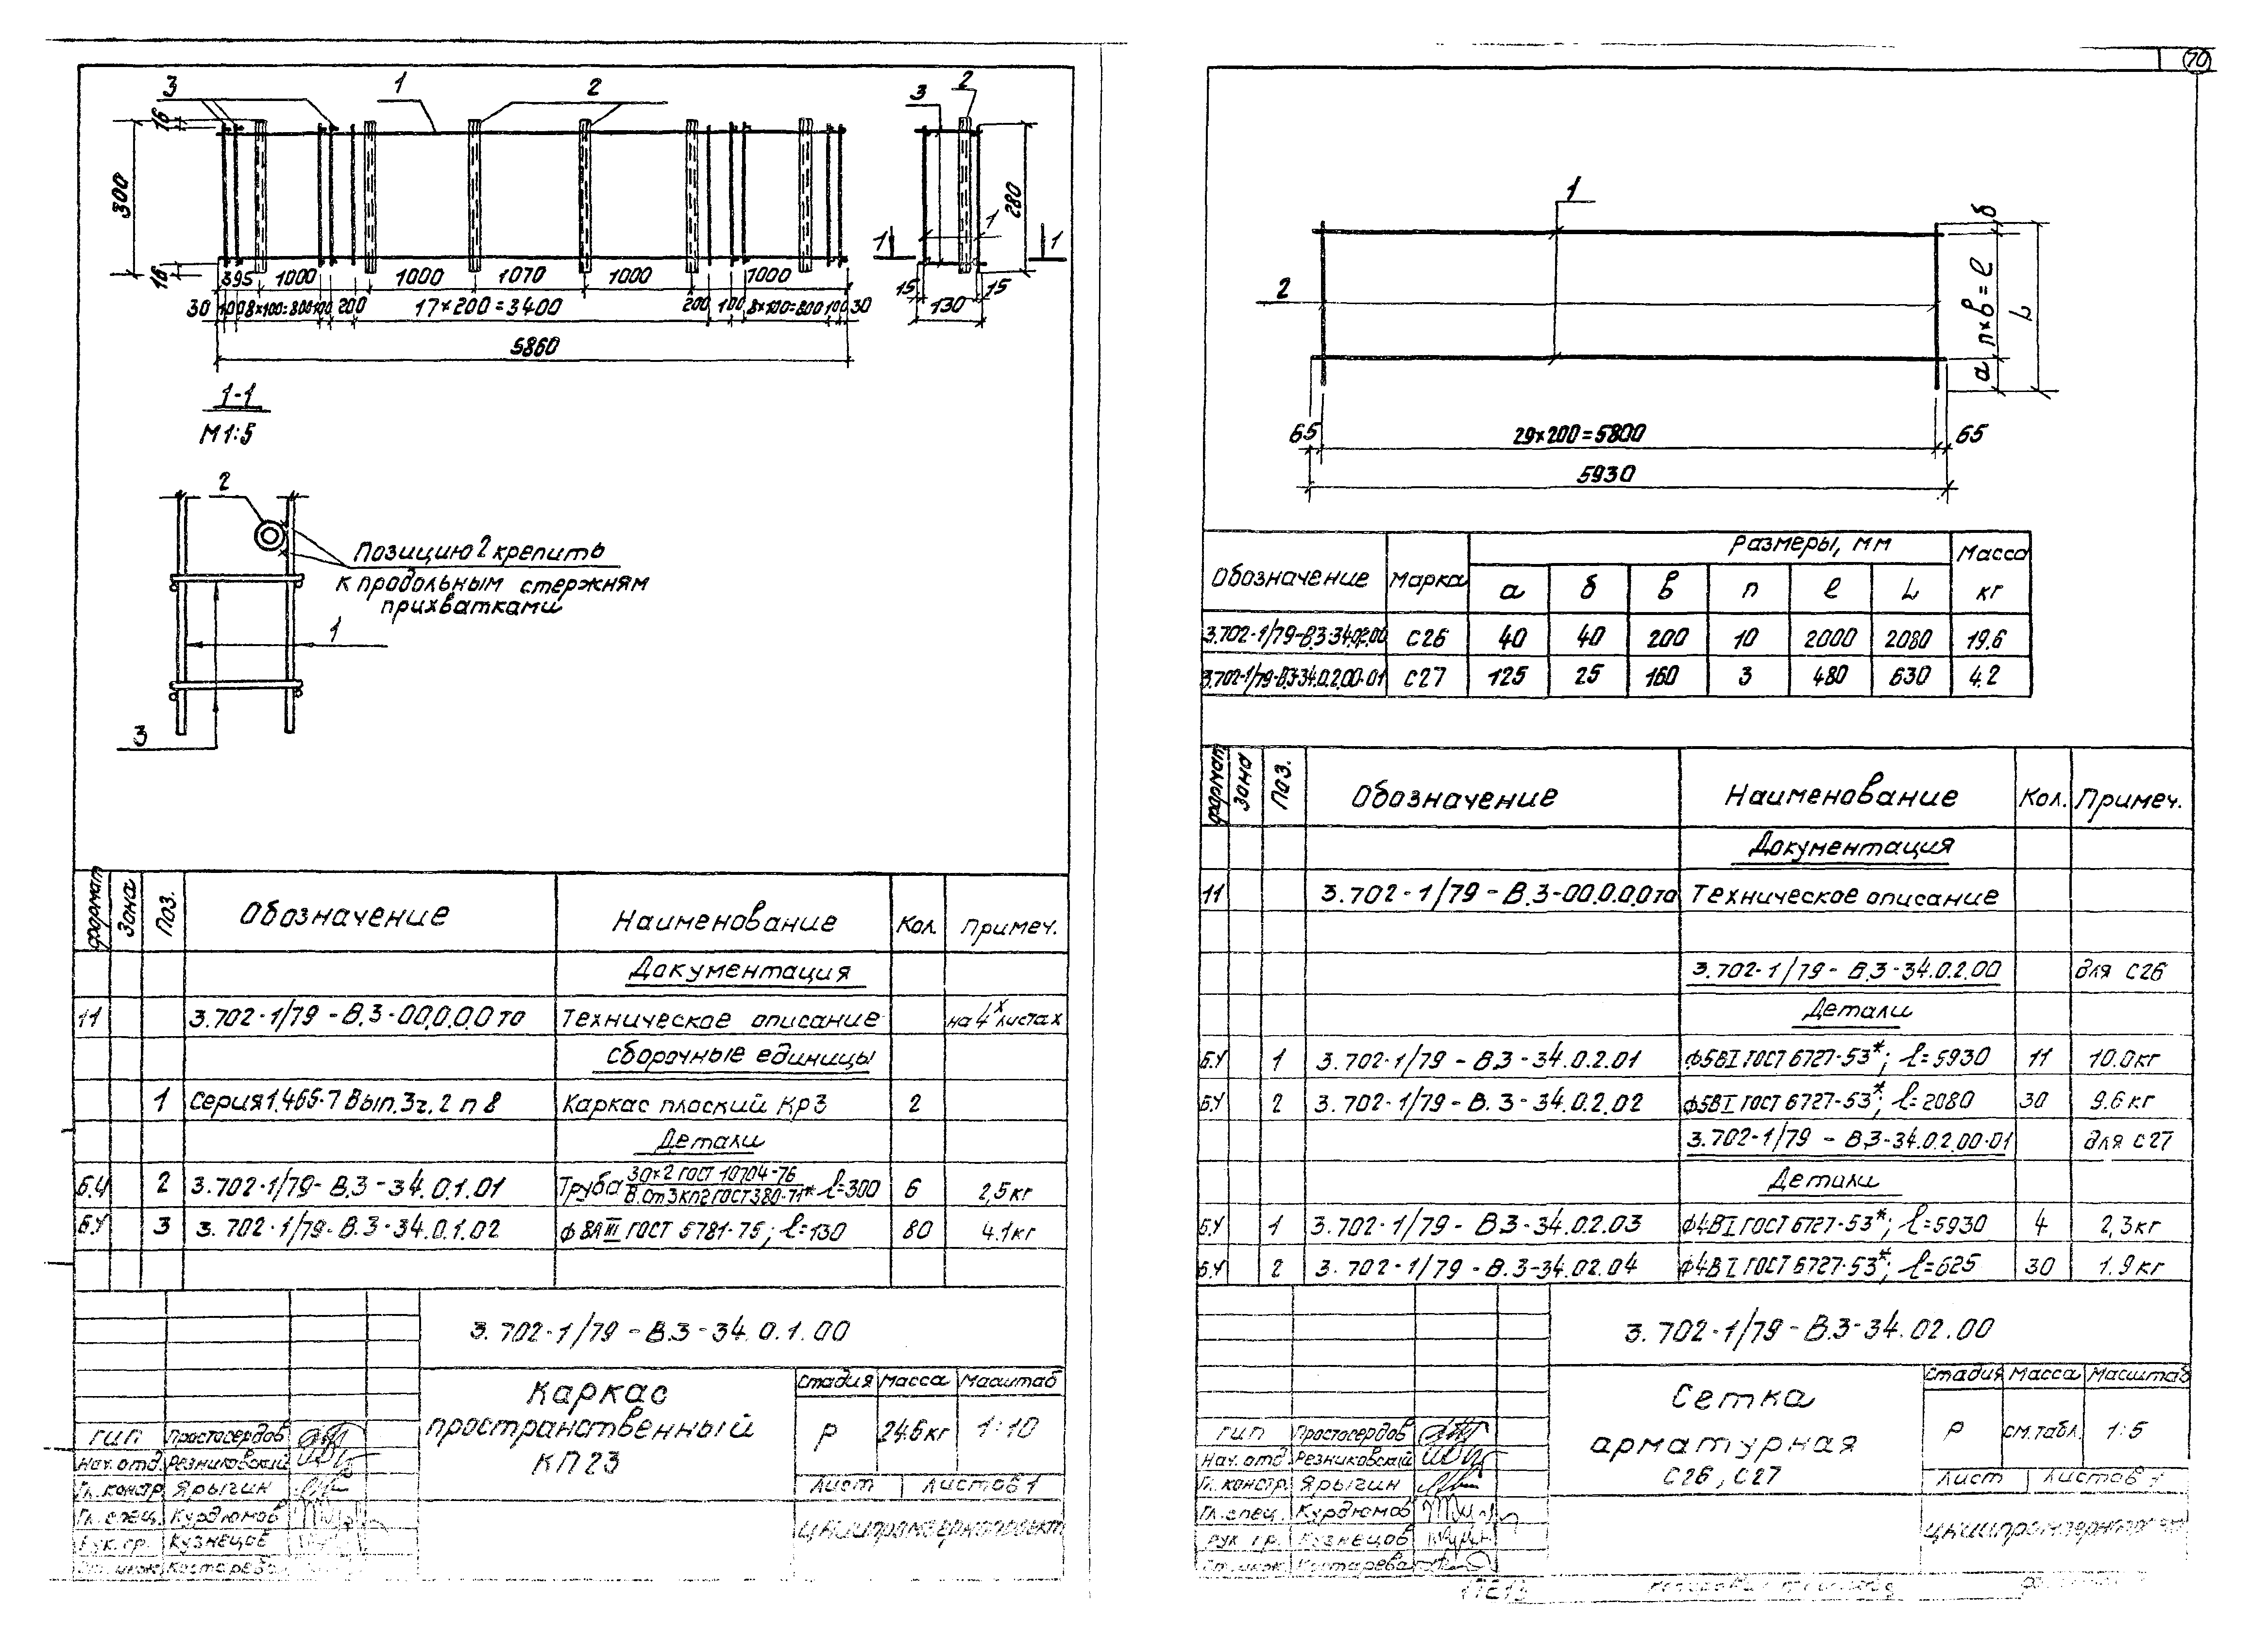 3 1 2 3 2
16
300
16
280
1 1 1
395 1000 1000 1070 1000 1000
30 100 8×100=800 100 200 17×200=3400 200 100 8×100=800 100 30
5860
15 15
130
1-1
М1:5
2
Позицию 2 крепить
к продольным стержням
прихватками
1
3
формат Зона Поз. Обозначение Наименование Кол. Примеч.
Документация
11 3.702-1/79-В.3-00.0.0.0то Техническое описание на 4х листах
Сборочные единицы
1 Серия 1.465-7 Вып.3ч.2 п 8 Каркас плоский КР3 2
Детали
Б.Ч 2 3.702-1/79-В.3-34.0.1.01 Труба 30×2 ГОСТ 10704-76 / В.Ст3кп2 ГОСТ 380-71* ℓ=300 6 2,5кг
Б.Ч 3 3.702-1/79-В.3-34.0.1.02 ф8АIII ГОСТ 5781-75; ℓ=130 80 4.1кг
3.702-1/79-В.3-34.0.1.00
Каркас
пространственный
КП23
Стадия Масса Масштаб
Р 24.6кг 1:10
Лист Листов 1
ГИП Простосердов
Нач.отд. Резниковский
Гл.констр Ярыгин
Гл.спец. Курдюмов
Рук.гр. Кузнецов
Ст.инж. Костарева
70
1
2
б
п×в=ℓ
L
а
65 29×200=5800 65
5930
Обозначение Марка Размеры, мм Масса
а б в п ℓ L кг
3.702-1/79-В.3-34.0.2.00 С26 40 40 200 10 2000 2080 19.6
3.702-1/79-В.3-34.0.2.00-01 С27 125 25 160 3 480 630 4.2
формат Зона Поз. Обозначение Наименование Кол. Примеч.
Документация
11 3.702-1/79-В.3-00.0.0.0то Техническое описание
3.702-1/79-В.3-34.0.2.00 для С26
Детали
Б.Ч 1 3.702-1/79-В.3-34.0.2.01 ф5ВI ГОСТ 6727-53*; ℓ=5930 11 10.0кг
Б.Ч 2 3.702-1/79-В.3-34.0.2.02 ф5ВI ГОСТ 6727-53*; ℓ=2080 30 9.6кг
3.702-1/79-В.3-34.0.2.00-01 для С27
Детали
Б.Ч 1 3.702-1/79-В.3-34.02.03 ф4ВI ГОСТ 6727-53*; ℓ=5930 4 2,3кг
Б.Ч 2 3.702-1/79-В.3-34.02.04 ф4ВI ГОСТ 6727-53*; ℓ=625 30 1.9кг
3.702-1/79-В.3-34.02.00
Сетка
арматурная
С26, С27
Стадия Масса Масштаб
Р см.табл. 1:5
Лист Листов 1
ГИП Простосердов
Нач.отд Резниковский
Гл.констр. Ярыгин
Гл.спец. Курдюмов
Рук гр. Кузнецов
Ст.инж. Костарева